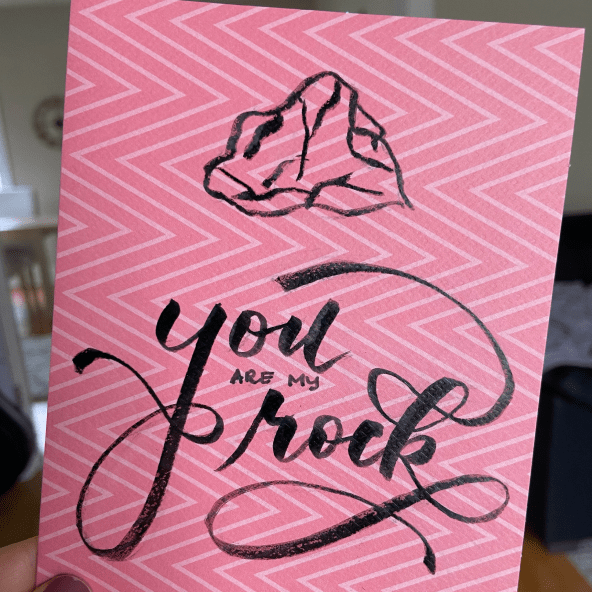 you
ARE MY
rock